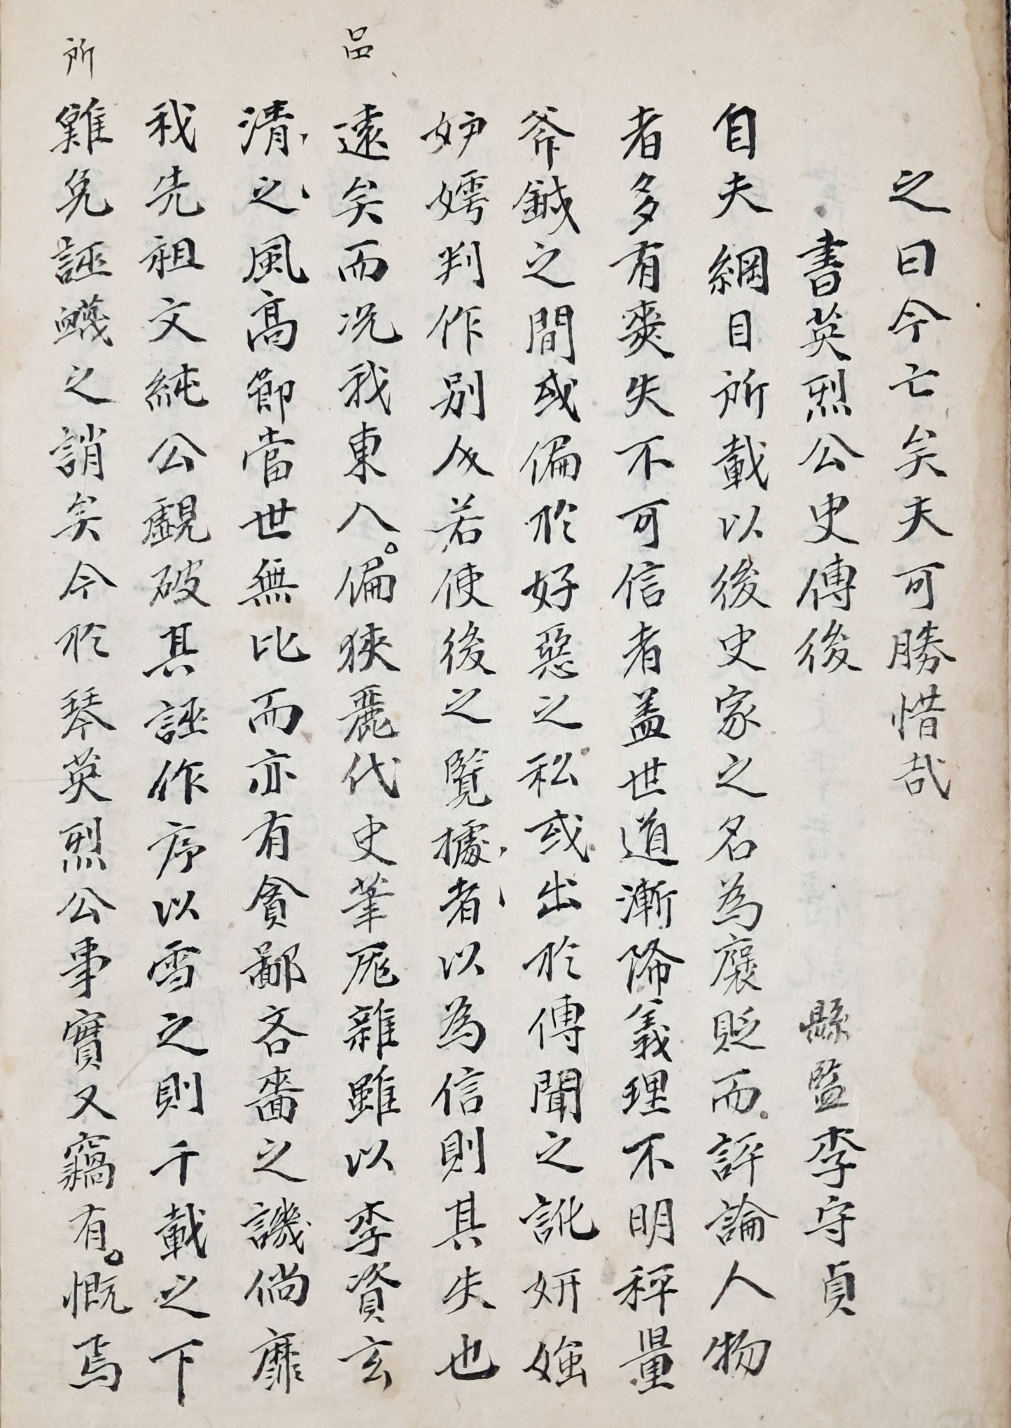 之曰今亡矣夫可勝惜哉
書英烈公史傳後
縣監李守貞
自夫綱目所載以後史家之名為襃貶而評論人物
者多有爽失不可信者盖世道漸降義理不明秤量
斧鉞之間或偏於好惡之私或出於傳聞之訛妍媸
妒嫮判作別人若使後之覽據者以為信則其失也
遠矣而况我東人偏狹麗代史筆厖雜雖以李資玄
品
清之風高節當世無比而亦有貪鄙吝嗇之譏倘靡
我先祖文純公覷破其誣作序以雪之則千載之下
難免誣衊之誚矣今於琴英烈公事實又竊有慨焉
所